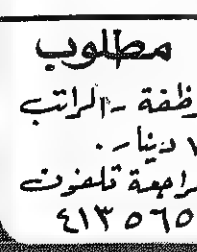 مطلوب
وظفة - الراتب
١ دينار.
راجعة تلفون
٤١٣٥٦٥